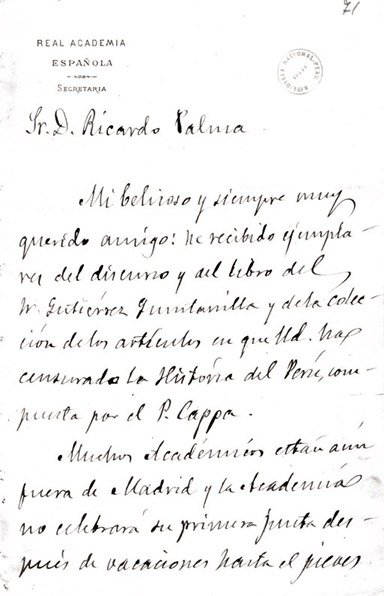 71
REAL ACADEMIA
ESPAÑOLA
SECRETARIA
BIBLIOTECA NACIONAL-PERU
Sr. D. Ricardo Palma.
Mi belicoso y siempre muy
querido amigo: he recibido ejempla-
res del discurso y del libro del
Sr. Gutiérrez Quintanilla y de la colec-
ción de los artículos en que Ud. ha
censurado la Historia del Perú, com-
puesta por el P. Cappa.
Muchos Académicos están aún
fuera de Madrid y la Academia
no celebrará su primera junta des-
pués de vacaciones hasta el jueves